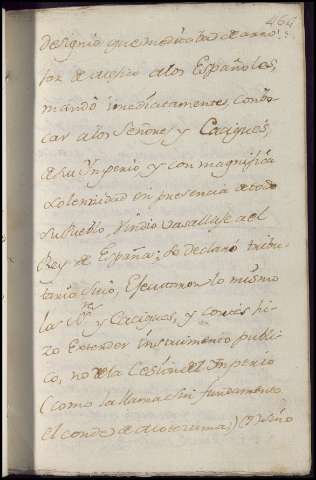 464
designio que medio
de alos Españoles,
mandó inmediatamente, convo-
car a los Señores y Caciques,
de su Ymperio, y con magnifica
solemnidad en presencia de todo
su Pueblo, rindio vasallaje a el
Rey de España; se declaró tribu-
tario suio, Ejecutaron lo mismo
los y Caciques, y Cortés hi-
zo Extender instrumento publi-
co, no de la Cesion del Ymperio
(como la llama sin fundamento
el conde de